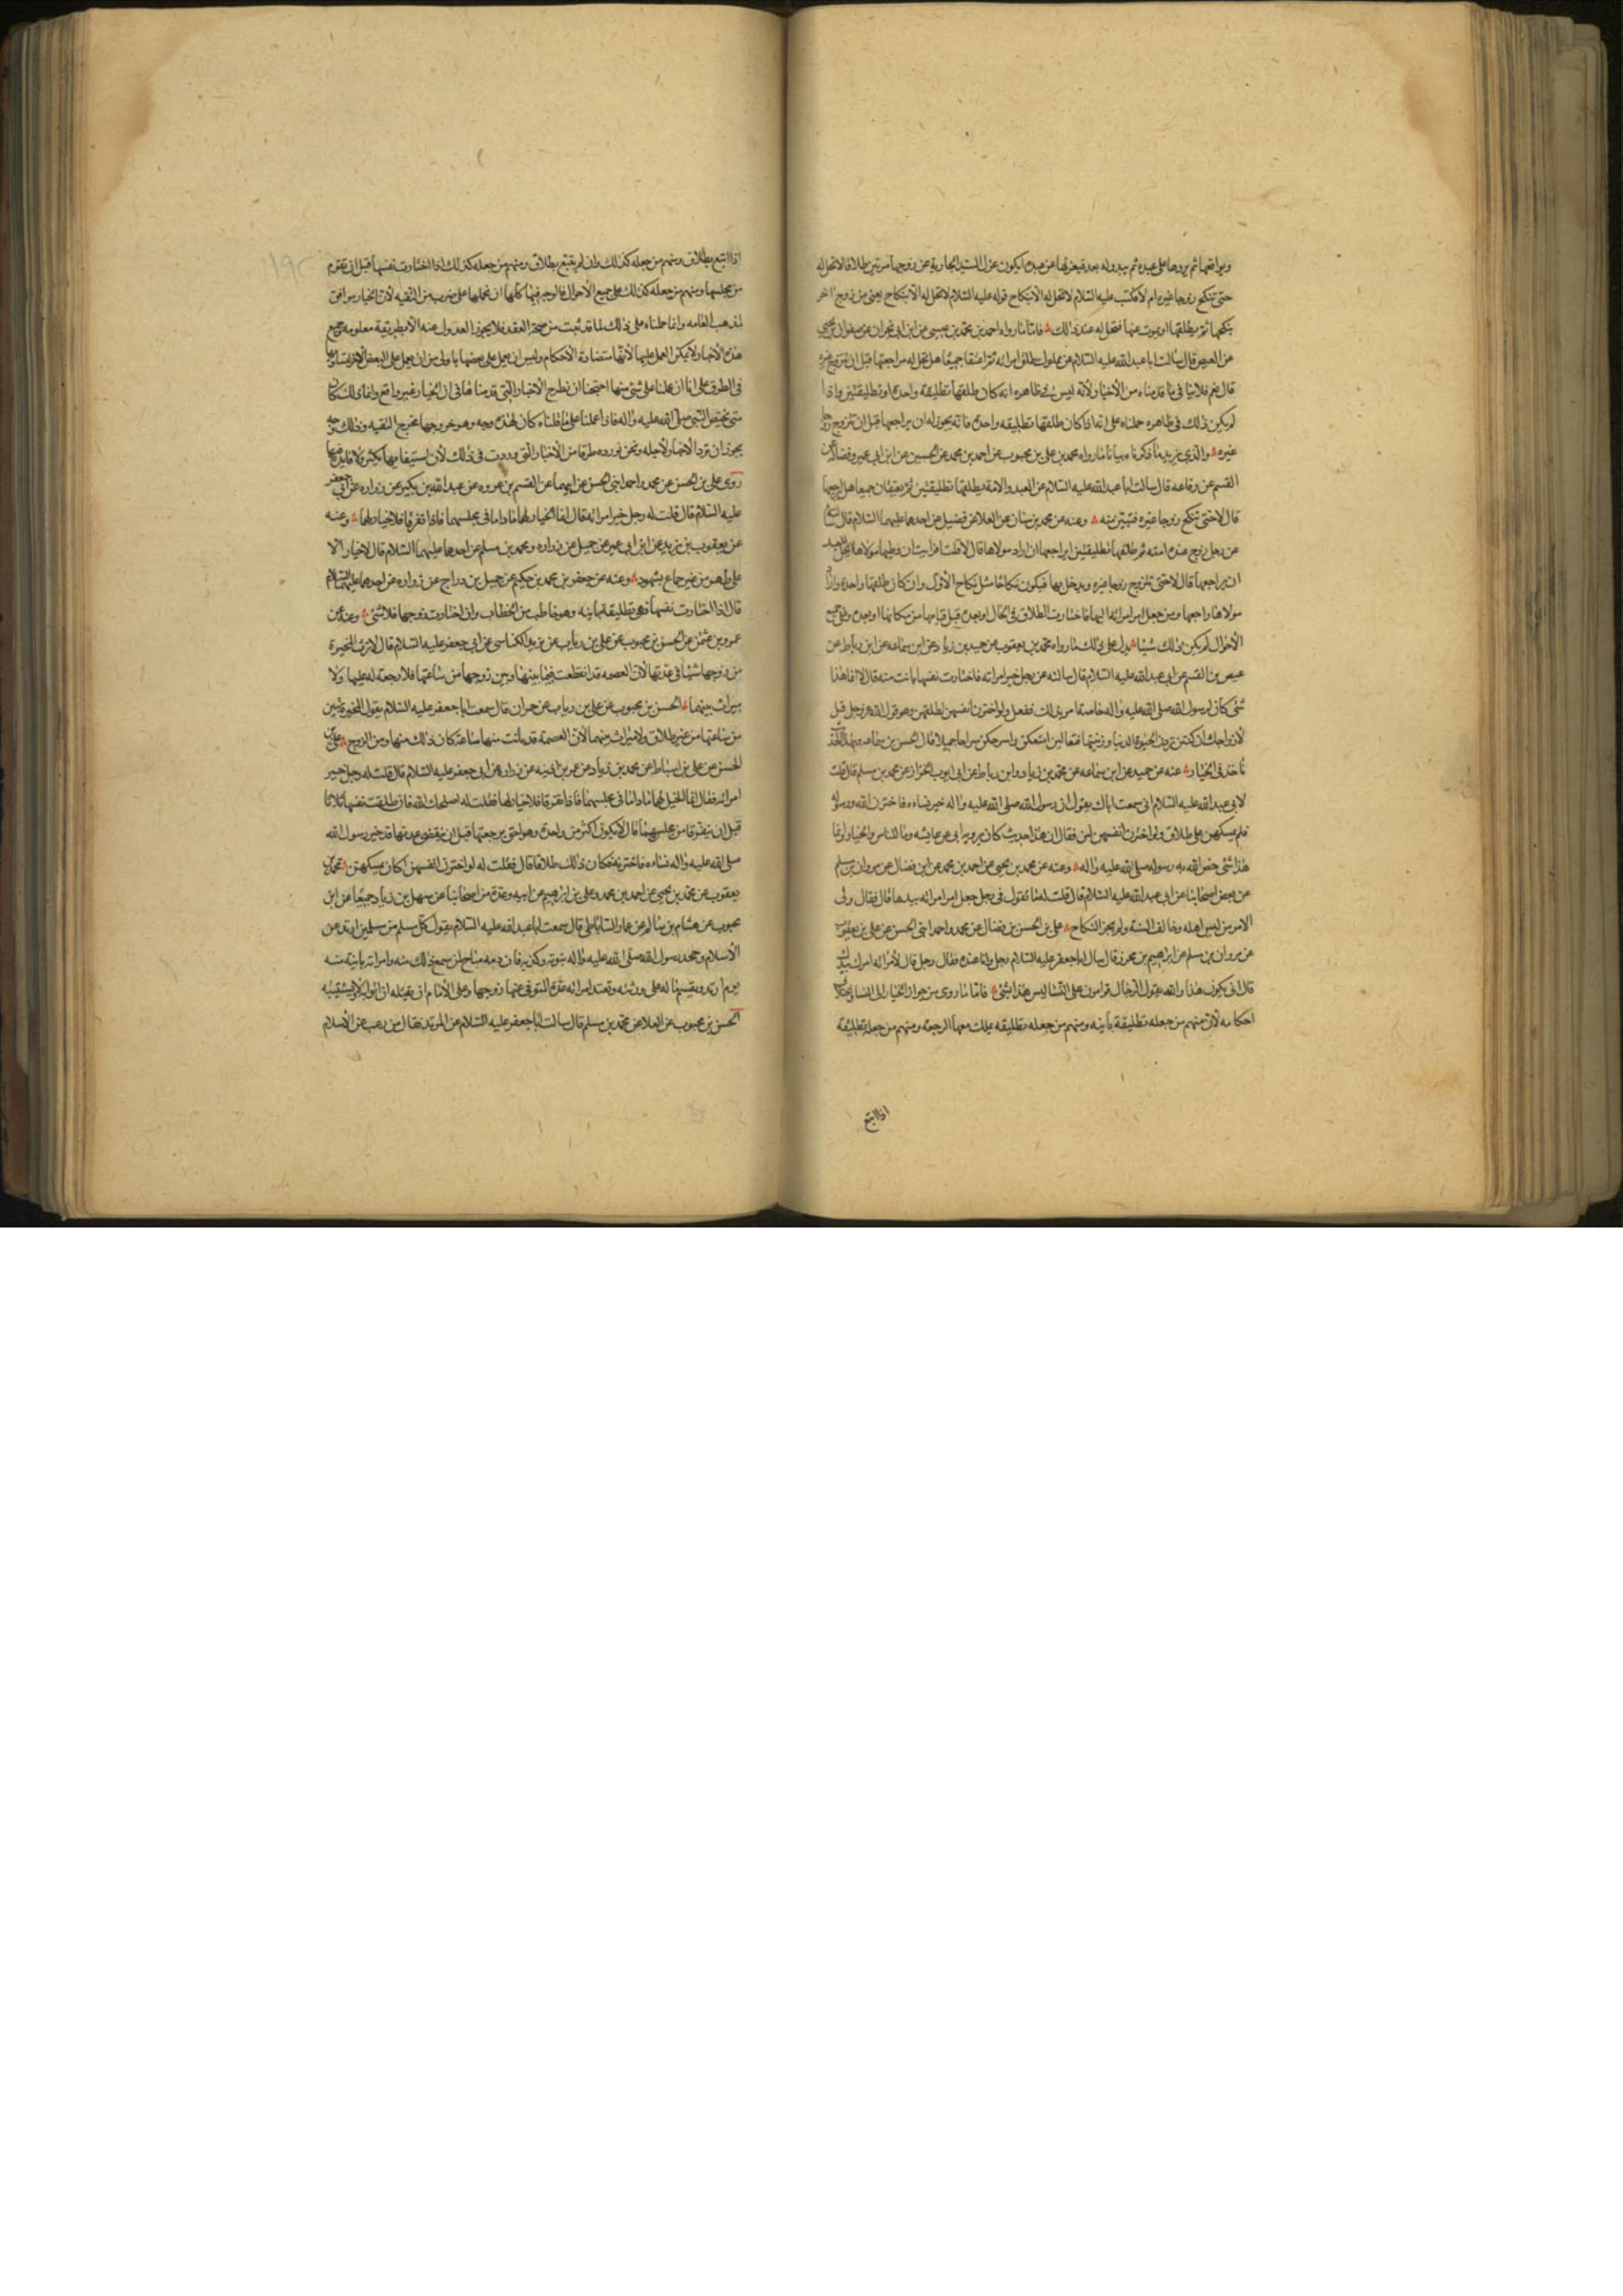 ويواقعها ثم يردها على عبده ثم يبدو له بعد فيعزلها عن عبده ايكون عزل السيد الجارية عن زوجها مرتين طلاقا لا تحل له
حتى تنكح زوجا غيره ام لا فكتب عليه السلام لا تحل له الا بنكاح قوله عليه السلام لا تحل له الا بنكاح يعني من زوج اخر
ينكحها ثم يطلقها او يموت عنها فتحل له عند ذلك فاما ما رواه احمد بن محمد بن عيسى عن ابن ابي نجران عن صفوان بن يحيى
عن العيص قال سالت ابا عبد الله عليه السلام عن مملوك طلق امراته ثم اعتقا جميعا هل تحل له مراجعتها قبل ان تتزوج غيره
قال نعم فلا ينافي ما قدمناه من الأخبار لأنه ليس في ظاهره انه كان طلقها تطليقة واحدة او تطليقتين واذا
لم يكن ذلك في ظاهره حملناه على انه اذا كان طلقها تطليقه واحدة فانه يجوز له ان يراجعها قبل ان تتزوج رجل
غيره والذي يزيد ما ذكرناه بيانا ما رواه محمد بن علي بن محبوب عن احمد بن محمد عن الحسين عن ابن ابي عمير وفضاله عن
القسم عن رفاعه قال سالت ابا عبد الله عليه السلام عن العبد والامة يطلقها تطليقتين ثم يعتقان جميعا هل يراجعها
قال لا حتى تنكح زوجا غيره فتبين منه وعنه عن محمد بن سنان عن العلا عن فضيل عن احدهما عليهما السلام قال سالته
عن رجل زوج عبده امته ثم طلقها تطليقتين ايراجعها ان اراد مولاها قال لا قلت افرايت ان وطيها مولاها ايحل للعبد
ان يراجعها قال لا حتى تتزوج زوجا غيره ويدخل بها فيكون نكاحا مثل نكاح الأول وان كان طلقها واحدة واراد
مولاها راجعها ومن جعل امر امراته اليها فاختارت الطلاق في الحال او بعده قبل قيامها من مكانها او بعده وفي جميع
الأحوال لم يكن ذلك شيئا يدل على ذلك ما رواه محمد بن يعقوب عن حميد بن زياد عن ابن سماعه عن ابن رباط عن
عيص بن القسم عن ابي عبد الله عليه السلام قال سالته عن رجل خير امراته فاختارت نفسها بانت منه قال لا انما هذا
شئ كان لرسول الله صلى الله عليه واله خاصة امر بذلك ففعل ولو اخترن انفسهن لطلقهن وهو قول الله عز وجل قل
لازواجك ان كنتن تردن الحيوة الدنيا وزينتها فتعالين امتعكن واسرحكن سراحا جميلا قال الحسن بن سماعه وبهذا الخبر
ناخذ في الخيار عنه عن حميد عن ابن سماعه عن محمد بن زياد وابن رباط عن ابي ايوب الخزاز عن محمد بن مسلم قال قلت
لابي عبد الله عليه السلام اني سمعت اباك يقول ان رسول الله صلى الله عليه واله خير نساءه فاخترن الله ورسوله
فلم يمسكهن على طلاق ولو اخترن انفسهن لبن فقال ان هذا حديث كان يرويه ابي عن عايشه وما للناس والخيار انما
هذا شئ خص الله به رسوله صلى الله عليه واله وعنه عن محمد بن يحيى عن احمد بن محمد عن ابن فضال عن مروان بن مسلم
عن بعض اصحابنا عن ابي عبد الله عليه السلام قال قلت له ما تقول في رجل جعل امر امراته بيدها قال فقال ولى
الامر من ليس اهله وخالف السنة ولم يجز النكاح علي بن الحسن بن فضال عن محمد واحمد ابني الحسن عن علي بن يعقوب
عن مروان بن مسلم عن ابراهيم بن محرز قال سال ابا جعفر عليه السلام رجل وانا عنده فقال رجل قال لامراته امرك بيدك
قال انى يكون هذا والله يقول الرجال قوامون على النساء ليس هذا بشئ فاما ما روى من جواز الخيار الى النسا
احكامه لأن منهم من جعله تطليقة باينه ومنهم من جعله تطليقه يملك معها الرجعة ومنهم من جعله تطليقة
اذا اتبع
اذا اتبع بطلاق ومنهم من جعله كذلك وان لم يتبع بطلاق ومنهم من جعله كذلك اذا اختارت نفسها قبل ان تقوم
من مجلسها ومنهم من جعله كذلك على جميع الاحوال فالوجه فيها كلها ان نحملها على ضرب من التقيه لأن الخيار موافق
لمذهب العامه وانما حملناه على ذلك لما قد ثبت من صحة العقد فلا يجوز العدول عنه الا بطريقة معلومه وجميع
هذه الأخبار لا يمكن العمل عليها لأنها متضادة الأحكام وليس ان يعمل على بعضها باولى من ان يعمل على البعض الاخر
في الطرق على انا ان عملنا على شئ منها احتجنا ان نطرح الاخبار التي قدمناها في ان الخيار غير واقع وانما ذلك كان
شئ يختص النبي صلى الله عليه واله فاذا عملنا على ما قلناه كان لهذه وجه وهو خروجها مخرج التقيه وذلك وجه
يجوز ان ترد الاخبار لاجله ونحن نورد طرقا من الأخبار التي وردت في ذلك لأن استيفاءها يكثر
روى علي بن الحسن عن محمد واحمد ابني الحسن عن ابيهما عن القسم بن عروه عن عبد الله بن بكير عن زراره عن ابي جعفر
عليه السلام قال قلت له رجل خير امراته قال انما الخيار لها ما داما في مجلسهما فاذا تفرقا فلا خيار لها وعنه
عن يعقوب بن يزيد عن ابن ابي عمير عن جميل عن زراره ومحمد بن مسلم عن احدهما عليهما السلام قال لا خيار الا
على طهر من غير جماع بشهود وعنه عن جعفر بن محمد بن حكيم عن جميل بن دراج عن زراره عن احدهما عليهما السلام
قال اذا اختارت نفسها فهي تطليقة باينه وهو خاطب من الخطاب وان اختارت زوجها فلا شئ وعنه عن
عمرو بن عثمن عن الحسن بن محبوب عن علي بن رياب عن يزيد الكناسي عن ابي جعفر عليه السلام قال لا ترث المخيرة
من زوجها شيئا في عدتها لأن العصمه قد انقطعت فيما بينها وبين زوجها من ساعتها فلا رجعة له عليها ولا
ميراث بينهما الحسن بن محبوب عن علي بن رياب عن حمران قال سمعت ابا جعفر عليه السلام يقول المخيرة تبين
من ساعتها من غير طلاق ولا ميراث بينهما لأن العصمة قد بانت منها ساعة كان ذلك منها ومن الزوج علي بن
الحسن عن علي بن اسباط عن محمد بن زياد عن عمر بن اذينه عن زراره عن ابي جعفر عليه السلام قال قلت له رجل خير
امراته فقال انما الخيار لها ما داما في مجلسهما فاذا تفرقا فلا خيار لها فقلت له اصلحك الله فان طلقت نفسها ثلاثا
قبل ان يتفرقا من مجلسهما قال لا يكون اكثر من واحدة وهو احق برجعتها قبل ان ينقضي عدتها قد خير رسول الله
صلى الله عليه واله نساءه فاخترنه فكان ذلك طلاقا قال فقلت له لو اخترن انفسهن اكان يمسكهن محمد بن
يعقوب عن محمد بن يحيى عن احمد بن محمد وعلي بن ابراهيم عن ابيه وعدة من اصحابنا عن سهل بن زياد جميعا عن ابن
محبوب عن هشام بن سالم عن عمار الساباطي قال سمعت ابا عبد الله عليه السلام يقول كل مسلم من مسلمين ارتد عن
الأسلام وجحد رسول الله صلى الله عليه واله نبوته وكذبه فان دمه مباح لمن سمع ذلك منه وامراته باينة منه
يوم ارتد ويقسم ماله على ورثته وتعتد امراته عدة المتوفى عنها زوجها وعلى الأمام ان يقتله ان اتوا به ولا يستتيبه
الحسن بن محبوب عن العلا عن محمد بن مسلم قال سالت ابا جعفر عليه السلام عن المرتد فقال من رغب عن الأسلام